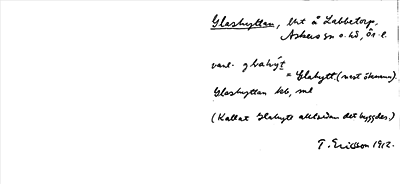 Glashyttan, lht å Labbetorp,
Askers sn o. hd, Ör. l.
vanl.
= Glahytt (mest ökännn).
Glashyttan kbb, ml
(Kallat Glahytt alltsedan det byggdes.)
T. Ericsson 1912.